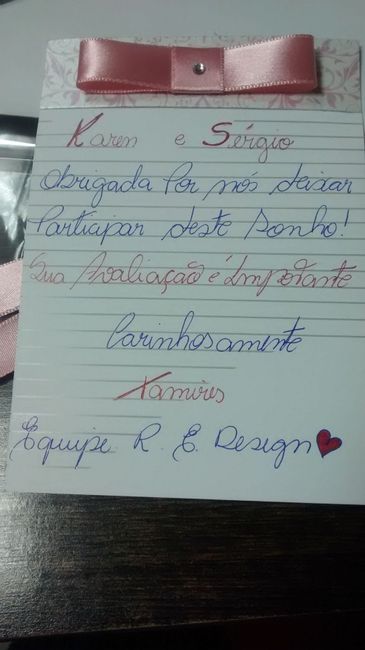 Karen e Sérgio
Obrigada por nós deixar
Participar deste Sonho!
Sua Avaliação é Importante
Carinhosamente
Tamires
Equipe R. E. Design